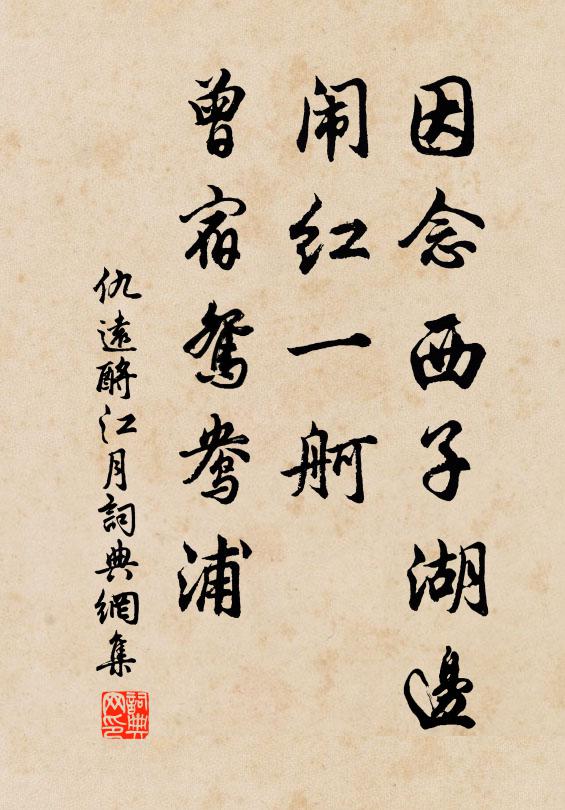 因念西子湖邊
闹红一舸
曾宿鴛鴦浦
仇遠酹江月詞典網集
詞典
网印